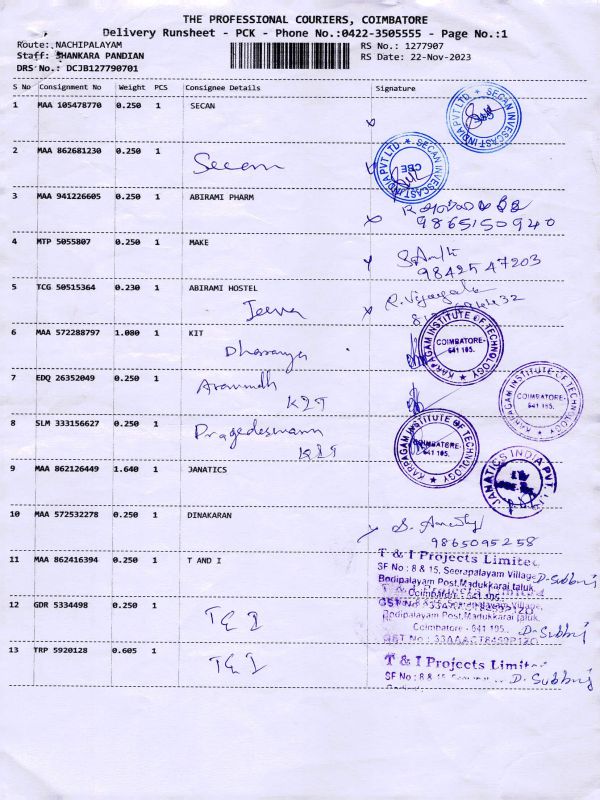 THE PROFESSIONAL COURIERS, COIMBATORE
Delivery Runsheet - PCK - Phone No.:0422-3505555 - Page No.:1
Route: NACHIPALAYAM
RS No.: 1277907
Staff: SHANKARA PANDIAN
RS Date: 22-Nov-2023
DRS No.: DCJB127790701
S No Consignment No Weight PCS Consignee Details Signature
1 MAA 105478770 0.250 1 SECAN
SECAN INVESCAST INDIA PVT LTD
2 MAA 862681230 0.250 1
Secan
SECAN INVESCAST INDIA PVT LTD
CBE
3 MAA 941226605 0.250 1 ABIRAMI PHARM
9865150940
4 MTP 5055807 0.250 1 MAKE
9842547203
5 TCG 50515364 0.230 1 ABIRAMI HOSTEL
Jeeva
R. Vijayala
6 MAA 572288797 1.080 1 KIT
KARPAGAM INSTITUTE OF TECHNOLOGY
COIMBATORE-
641 105.
7 EDQ 26352049 0.250 1
Aravindh
KIT
KARPAGAM INSTITUTE OF TECHNOLOGY
COIMBATORE-
641 105.
8 SLM 333156627 0.250 1
KIT
KARPAGAM INSTITUTE OF TECHNOLOGY
COIMBATORE-
641 105.
9 MAA 862126449 1.640 1 JANATICS
JANATICS INDIA PVT. LTD
10 MAA 572532278 0.250 1 DINAKARAN
9865095258
11 MAA 862416394 0.250 1 T AND I
T & I Projects Limited
SF No : 8 & 15, Seerapalayam Village
Bodipalayam Post, Madukkarai taluk,
D. Subburj
12 GDR 5334498 0.250 1
T & I
Bodipalayam Post, Madukkarai taluk,
Coimbatore - 641 105.
D. Subburj
13 TRP 5920128 0.605 1
T & I
T & I Projects Limited
SF No : 8 & 15
D. Subburj